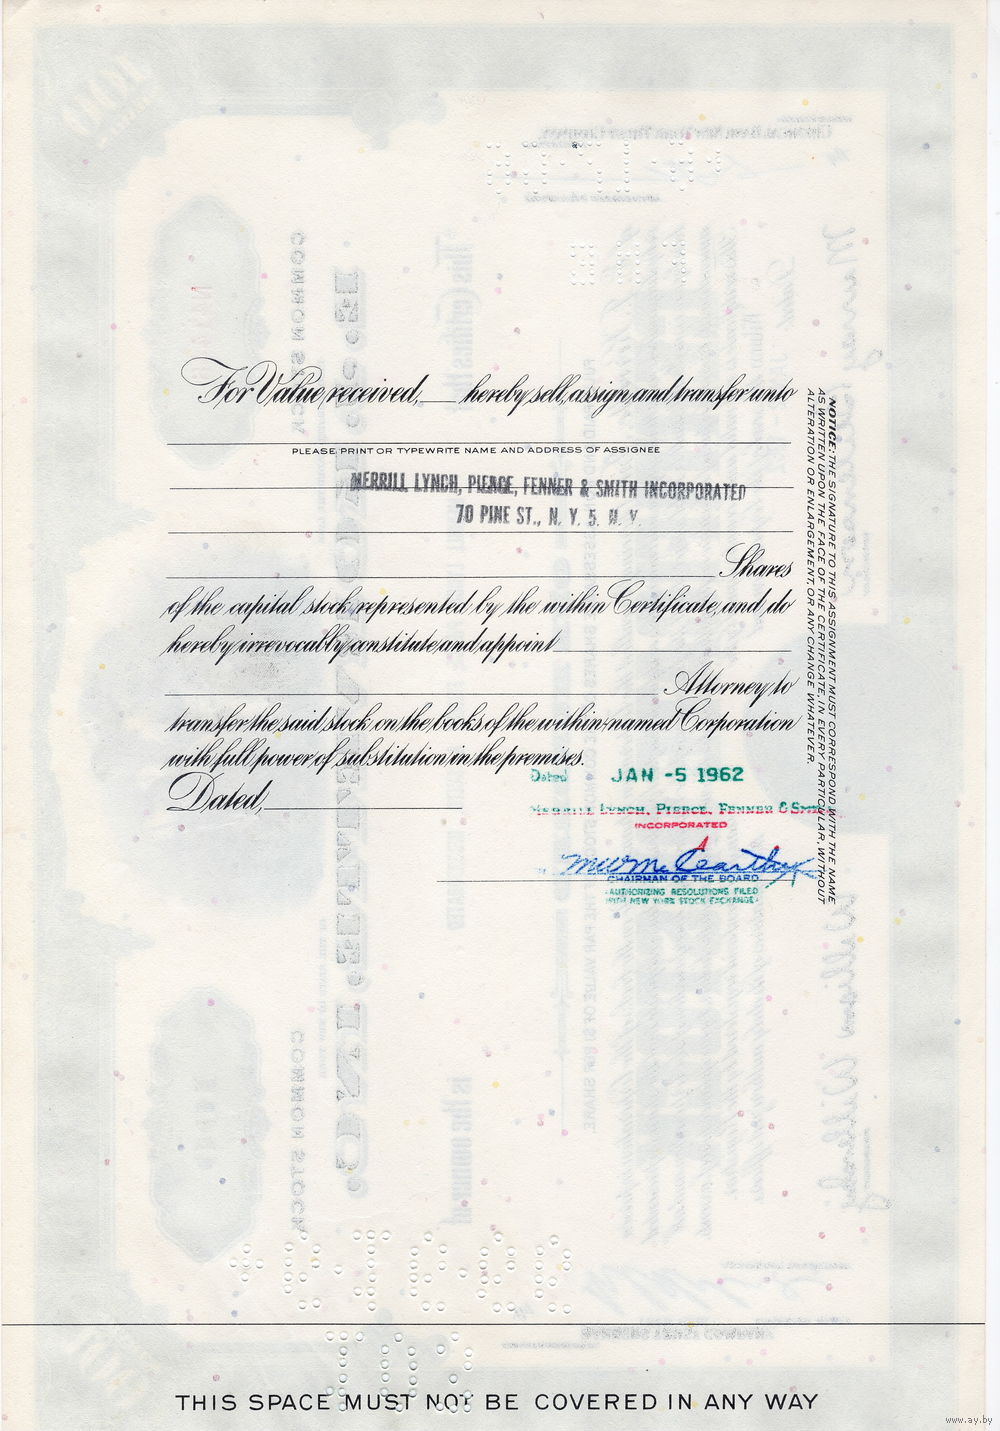 For Value received, hereby sell, assign and transfer unto
PLEASE PRINT OR TYPEWRITE NAME AND ADDRESS OF ASSIGNEE
MERRILL LYNCH, PIERCE, FENNER & SMITH INCORPORATED
70 PINE ST., N. Y. 5. N. Y.
Shares
of the capital stock represented by the within Certificate, and do
hereby irrevocably constitute and appoint
Attorney to
transfer the said stock on the books of the within-named Corporation
with full power of substitution in the premises.
Dated,
Dated JAN -5 1962
MERRILL LYNCH, PIERCE, FENNER & SMITH
INCORPORATED
CHAIRMAN OF THE BOARD
AUTHORIZING RESOLUTIONS FILED
WITH NEW YORK STOCK EXCHANGE
NOTICE: THE SIGNATURE TO THIS ASSIGNMENT MUST CORRESPOND WITH THE NAME
AS WRITTEN UPON THE FACE OF THE CERTIFICATE, IN EVERY PARTICULAR, WITHOUT
ALTERATION OR ENLARGEMENT, OR ANY CHANGE WHATEVER.
THIS SPACE MUST NOT BE COVERED IN ANY WAY
www.ay.by